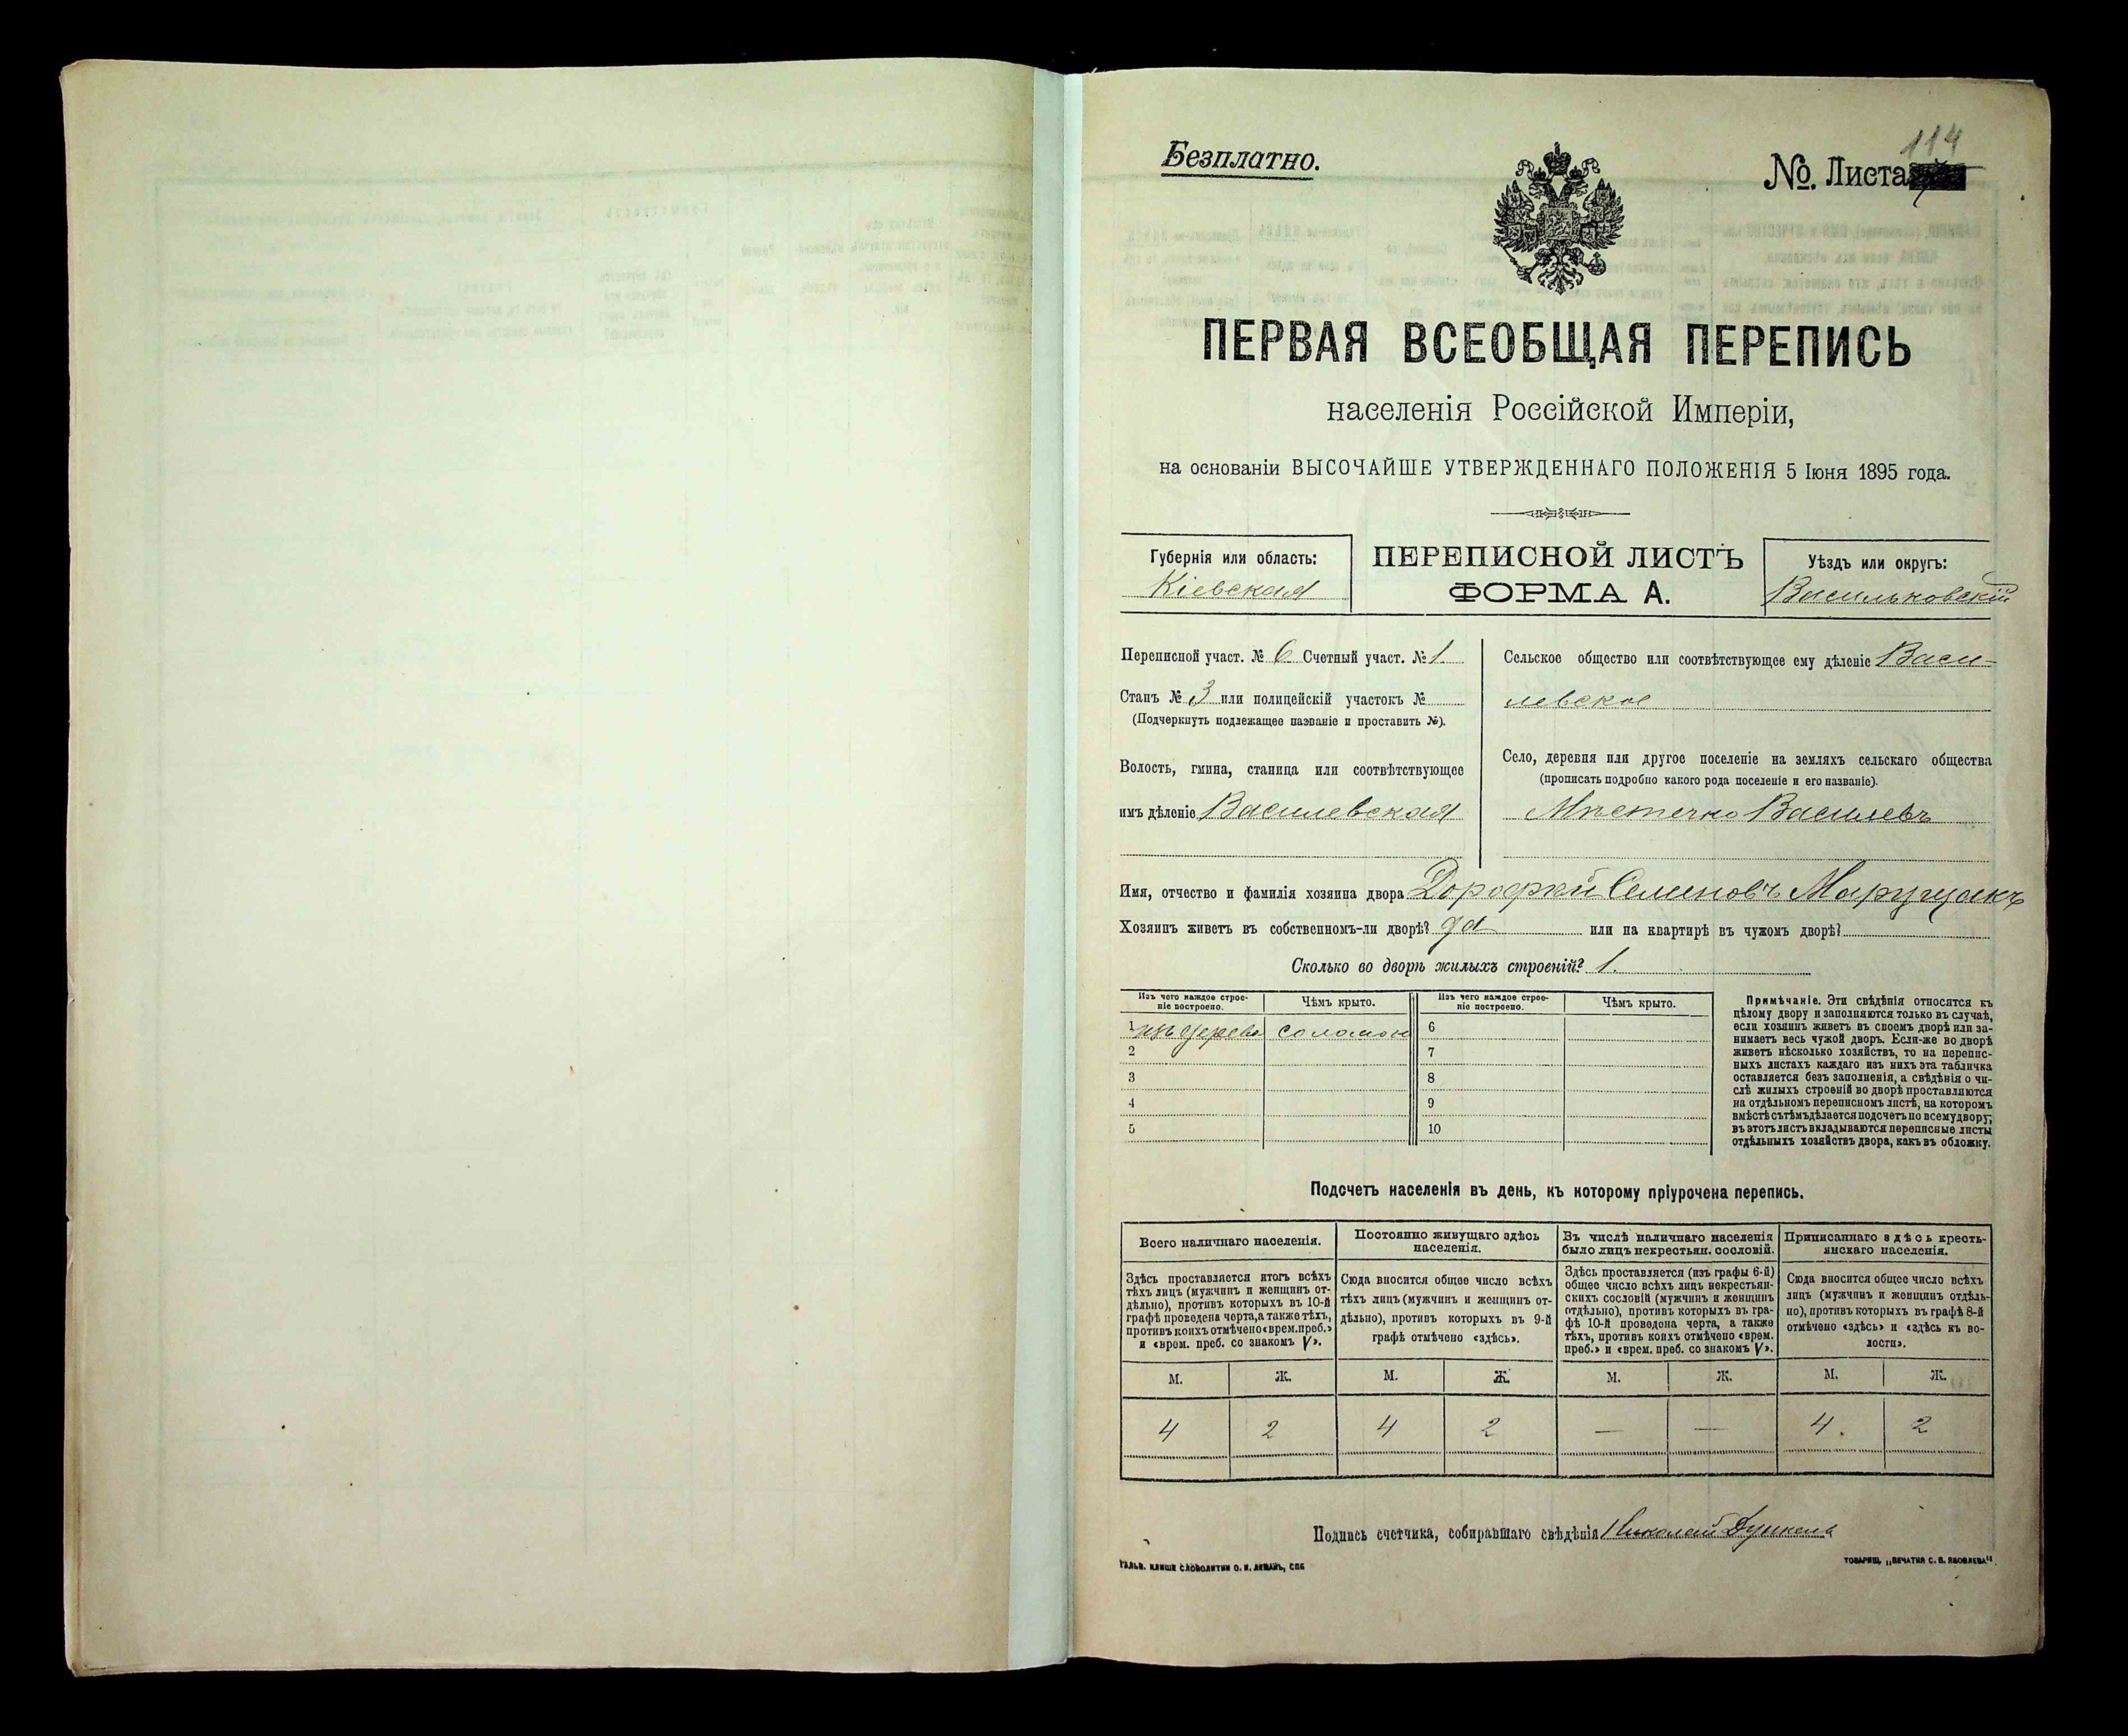 114
Безплатно.
№. Листа
ПЕРВАЯ ВСЕОБЩАЯ ПЕРЕПИСЬ
населенія Россійской Имперіи,
на основаніи ВЫСОЧАЙШЕ УТВЕРЖДЕННАГО ПОЛОЖЕНІЯ 5 Іюня 1895 года.
Губернія или область:
Кіевская
ПЕРЕПИСНОЙ ЛИСТЪ
ФОРМА А.
Уѣздъ или округъ:
Васильковскій
Переписной участ. № 6 Счетный участ. № 1
Станъ № 3 или полицейскій участокъ №
(Подчеркнуть подлежащее названіе и проставить №).
Волость, гмина, станица или соотвѣтствующее
имъ дѣленіе Василевская
Сельское общество или соотвѣтствующее ему дѣленіе Васи-
левское
Село, деревня или другое поселеніе на земляхъ сельскаго общества
(прописать подробно какого рода поселеніе и его названіе).
Мѣстечко Василевъ
Имя, отчество и фамилія хозяина двора Дорофей Семеновъ Марущакъ
Хозяинъ живетъ въ собственномъ-ли дворѣ? да или на квартирѣ въ чужомъ дворѣ?
Сколько во дворѣ жилыхъ строеній? 1.
Изъ чего каждое строе-
ніе построено.
Чѣмъ крыто.
Изъ чего каждое строе-
ніе построено.
Чѣмъ крыто.
1 изъ дерева соломою 6
2 7
3 8
4 9
5 10
Примѣчаніе. Эти свѣдѣнія относятся къ
цѣлому двору и заполняются только въ случаѣ,
если хозяинъ живетъ въ своемъ дворѣ или за-
нимаетъ весь чужой дворъ. Если-же во дворѣ
живетъ нѣсколько хозяйствъ, то на перепис-
ныхъ листахъ каждаго изъ нихъ эта табличка
оставляется безъ заполненія, а свѣдѣнія о чи-
слѣ жилыхъ строеній во дворѣ проставляются
на отдѣльномъ переписномъ листѣ, на которомъ
вмѣстѣ съ тѣмъ дѣлается подсчетъ по всему двору;
въ этотъ листъ вкладываются переписные листы
отдѣльныхъ хозяйствъ двора, какъ въ обложку.
Подсчетъ населенія въ день, къ которому пріурочена перепись.
Всего наличнаго населенія.
Здѣсь проставляется итогъ всѣхъ
тѣхъ лицъ (мужчинъ и женщинъ от-
дѣльно), противъ которыхъ въ 10-й
графѣ проведена черта, а также тѣхъ,
противъ коихъ отмѣчено «врем. преб.»
и «врем. преб. со знакомъ V».
Постоянно живущаго здѣсь
населенія.
Сюда вносится общее число всѣхъ
тѣхъ лицъ (мужчинъ и женщинъ от-
дѣльно), противъ которыхъ въ 9-й
графѣ отмѣчено «здѣсь».
Въ числѣ наличнаго населенія
было лицъ некрестьян. сословій.
Здѣсь проставляется (изъ графы 6-й)
общее число всѣхъ лицъ некрестьян-
скихъ сословій (мужчинъ и женщинъ
отдѣльно), противъ которыхъ въ гра-
фѣ 10-й проведена черта, а также
тѣхъ, противъ коихъ отмѣчено «врем.
преб.» и «врем. преб. со знакомъ V».
Приписаннаго здѣсь кресть-
янскаго населенія.
Сюда вносится общее число всѣхъ
лицъ (мужчинъ и женщинъ отдѣль-
но), противъ которыхъ въ графѣ 8-й
отмѣчено «здѣсь» и «здѣсь къ во-
лости».
М. Ж. М. Ж. М. Ж. М. Ж.
4 2 4 2 — — 4. 2
Подпись счетчика, собиравшаго свѣдѣнія Николай
ГАЛЬВ. КЛИШЕ СЛОВОЛИТНИ О. И. ЛЕМАНЪ, СПБ
ТОВАРИЩ. „ПЕЧАТНЯ С. П. ЯКОВЛЕВА“